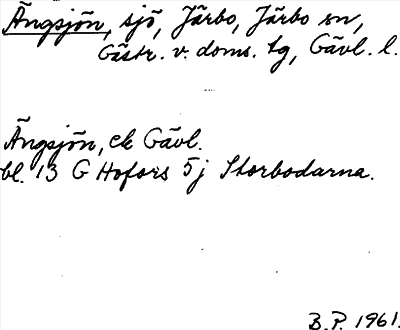 Ängsjön, sjö, Järbo, Järbo sn,
Gästr. v. doms. tg, Gävl. l.
Ängsjön, ek Gävl.
bl. 13 G Hofors 5 j Storbodarna.
B.P. 1961.